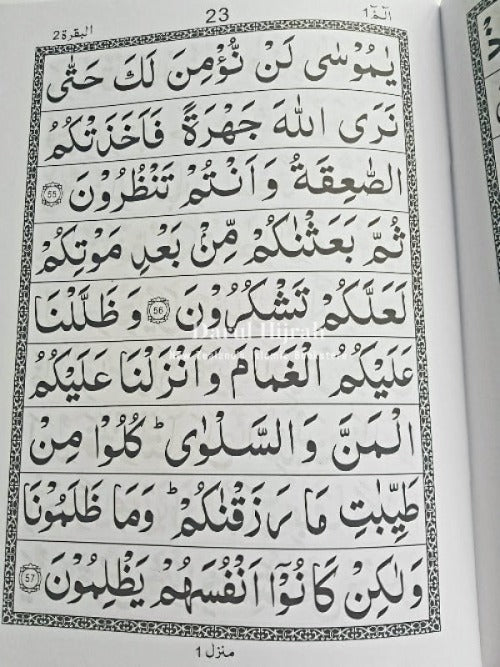 البقرة ٢ 23 الٓمّٓ ١
يٰمُوْسٰى لَنْ نُّؤْمِنَ لَكَ حَتّٰى
نَرَى اللّٰهَ جَهْرَةً فَاَخَذَتْكُمُ
الصّٰعِقَةُ وَاَنْتُمْ تَنْظُرُوْنَ 55
ثُمَّ بَعَثْنٰكُمْ مِّنْۢ بَعْدِ مَوْتِكُمْ
لَعَلَّكُمْ تَشْكُرُوْنَ 56 وَظَلَّلْنَا
Darul Hijrah
عَلَيْكُمُ الْغَمَامَ وَاَنْزَلْنَا عَلَيْكُمُ
الْمَنَّ وَالسَّلْوٰى ؕ كُلُوْا مِنْ
طَيِّبٰتِ مَا رَزَقْنٰكُمْ ؕ وَمَا ظَلَمُوْنَا
وَلٰكِنْ كَانُوْٓا اَنْفُسَهُمْ يَظْلِمُوْنَ 57
منزل ١